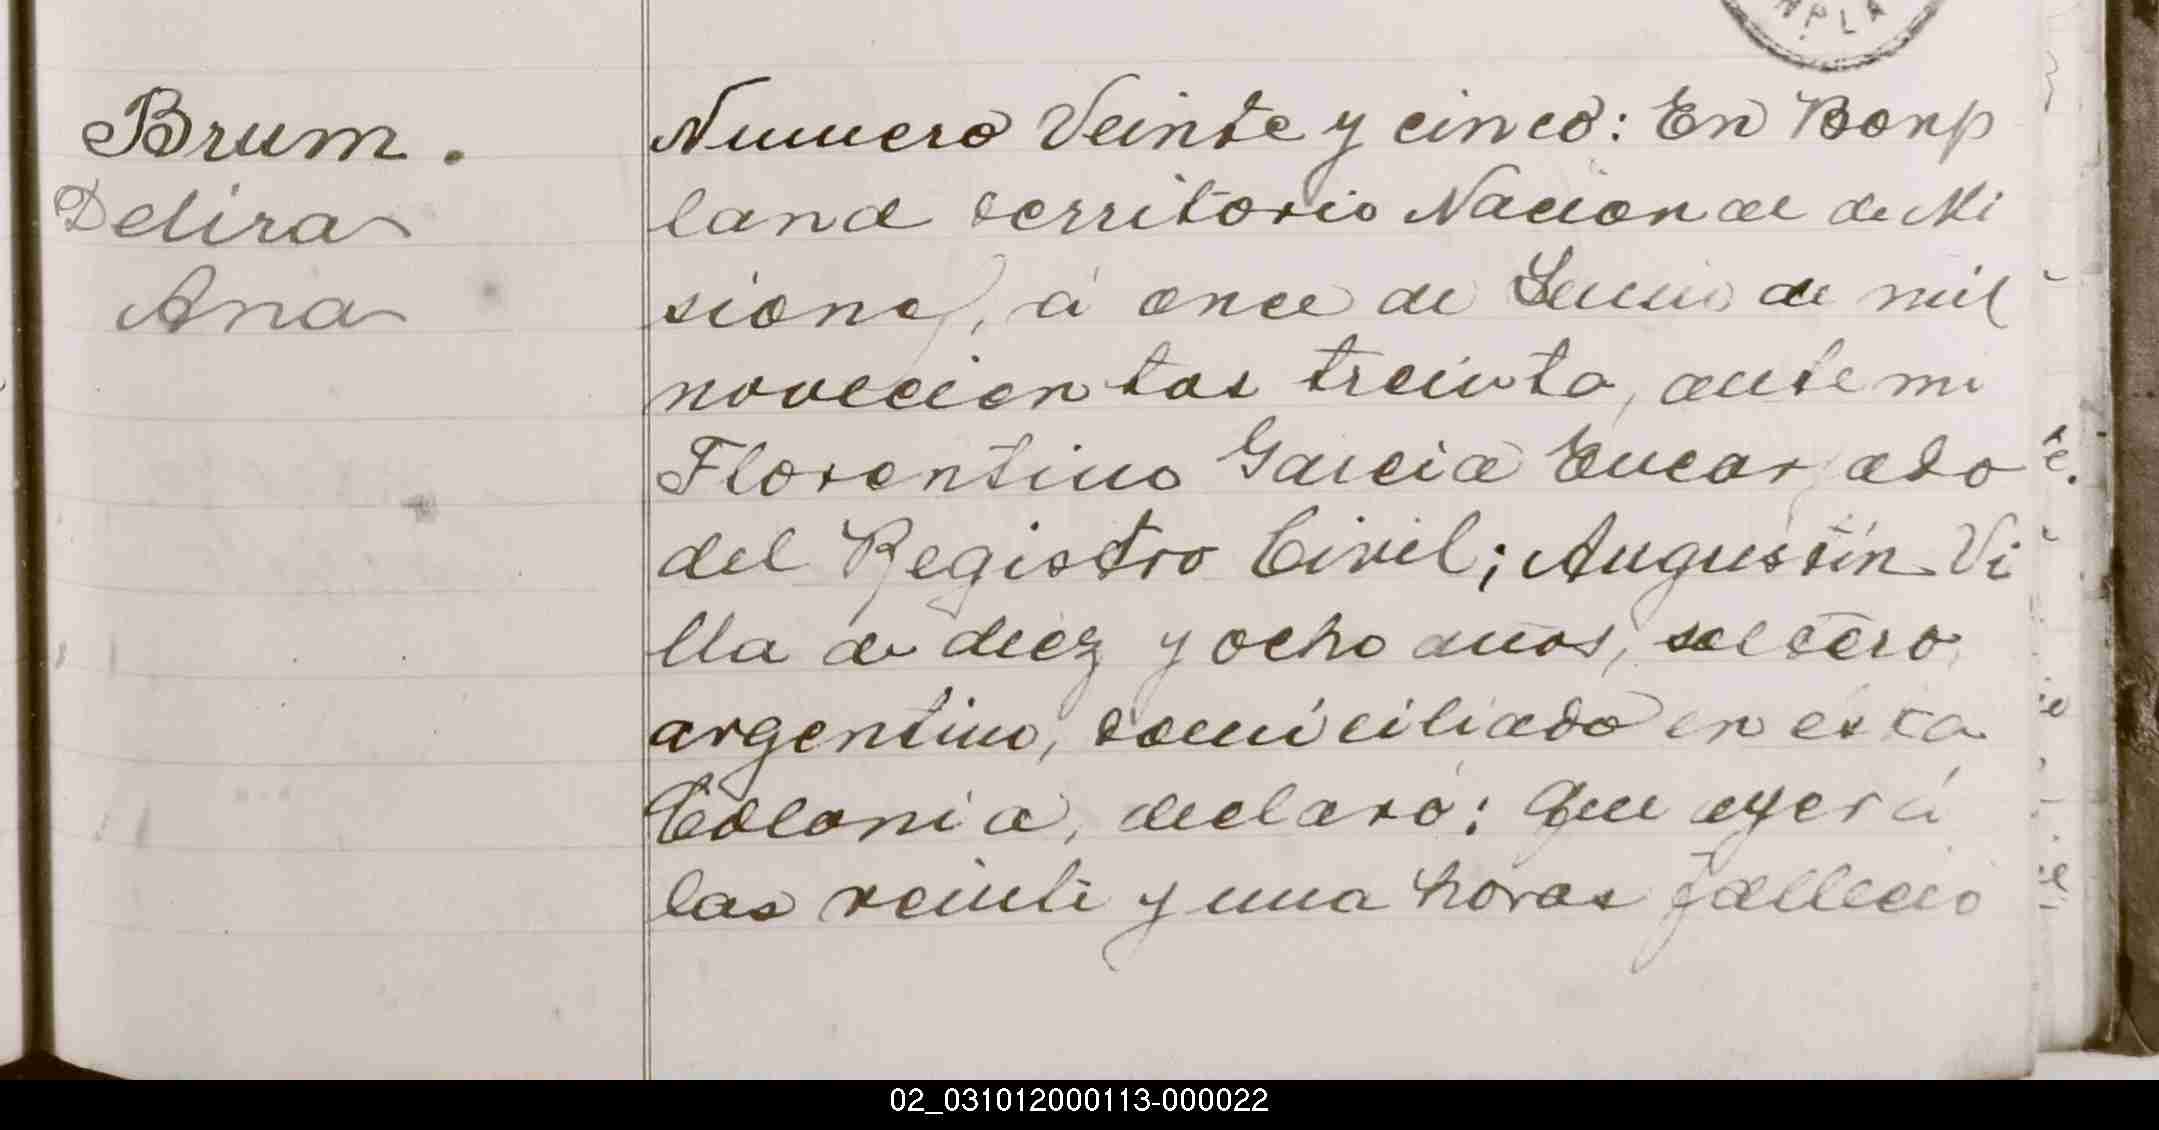 NPLA
Brum.
Delira
Ana
Numero Veinte y cinco: En Bonp
land territorio Nacional de Mi
siones, á once de Junio de mil
novecientos treinta, ante mi
Florentino Garcia Encargado
del Registro Civil; Augustín Vi
lla de diez y ocho años, soltero
argentino, domiciliado en esta
Colonia, declaró: Que ayer á
las veinti y una horas fallecio
02_031012000113-000022